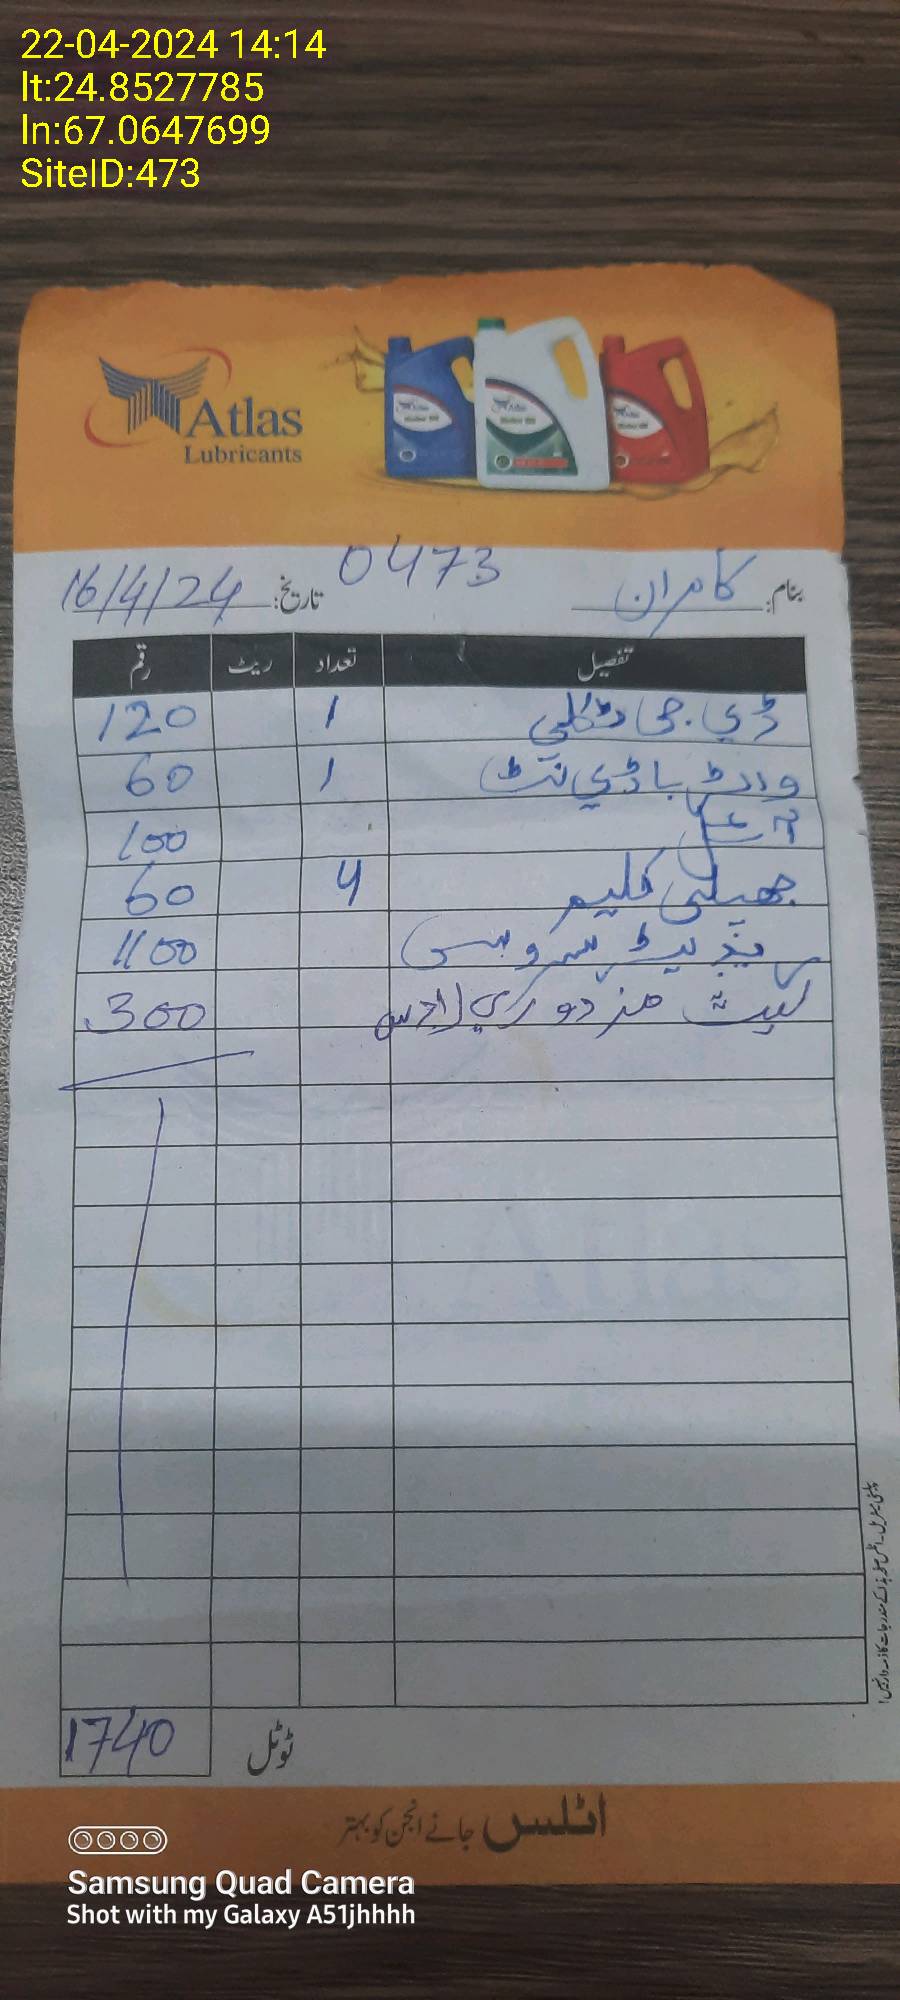 22-04-2024 14:14
lt:24.8527785
ln:67.0647699
SiteID:473
Atlas
Lubricants
0473
بنام: کامران تاریخ: 16/4/24
تفصیل تعداد ریٹ رقم
ڈی.جی 1 120
باڈی نٹ 1 60
100
جھبلی کلیم 4 60
سروس 1100
کیٹ مزدوری 300
ٹوٹل 1740
اٹلس جانے انجن کو بہتر
Samsung Quad Camera
Shot with my Galaxy A51jhhhh